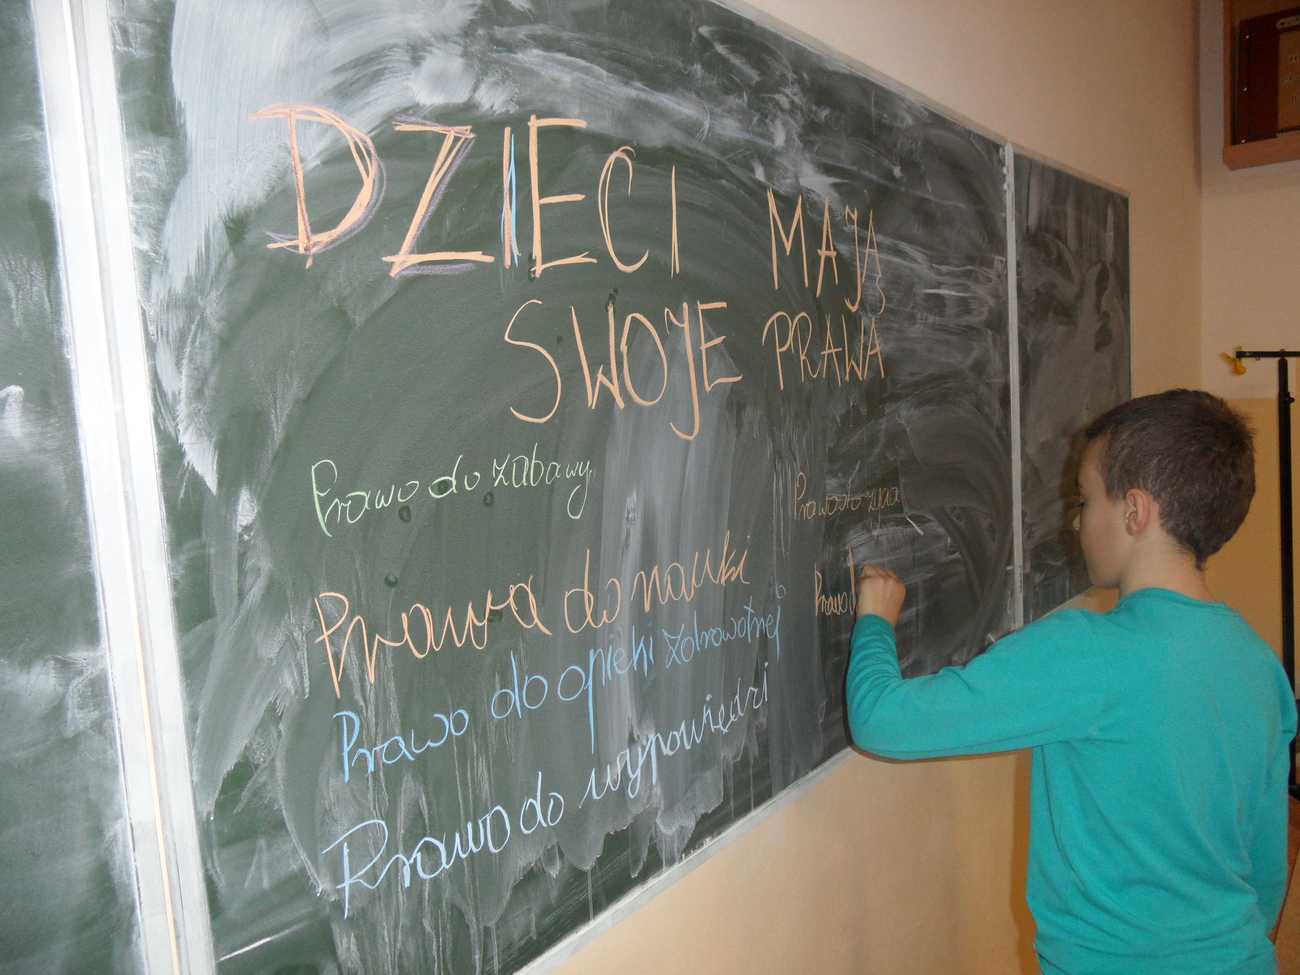 DZIECI MAJĄ
SWOJE PRAWA
Prawo do zabawy
Prawa do nauki
Prawo do opieki zdrowotnej
Prawo do wypowiedzi
Prawo do życia
Prawo